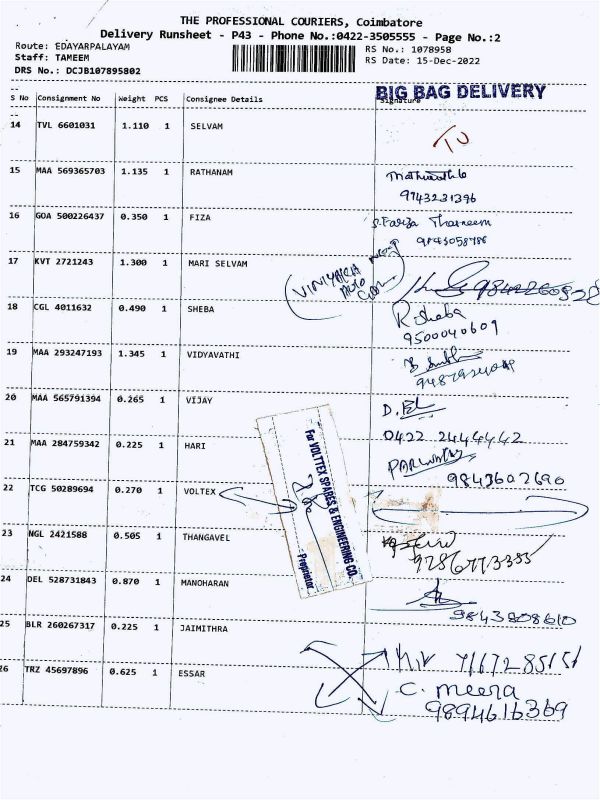 THE PROFESSIONAL COURIERS, Coimbatore
Delivery Runsheet - P43 - Phone No.:0422-3505555 - Page No.:2
Route: EDAYARPALAYAM
RS No.: 1078958
Staff: TAMEEM
RS Date: 15-Dec-2022
DRS No.: DCJB107895802
BIG BAG DELIVERY
S No Consignment No Weight PCS Consignee Details Signature
14 TVL 6601031 1.110 1 SELVAM
15 MAA 569365703 1.135 1 RATHANAM
9743231396
16 GOA 500226437 0.350 1 FIZA S. Farza Tharneem
9843058786
17 KVT 2721243 1.300 1 MARI SELVAM
18 CGL 4011632 0.490 1 SHEBA R. Sheba
9500040609
19 MAA 293247193 1.345 1 VIDYAVATHI
20 MAA 565791394 0.265 1 VIJAY
0422 2444442
21 MAA 284759342 0.225 1 HARI
9843602690
22 TCG 50289694 0.270 1 VOLTEX
For VOLTTEX SPARES & ENGINEERING CO.
Proprietor
23 NGL 2421588 0.505 1 THANGAVEL
9286773355
24 DEL 528731843 0.870 1 MANOHARAN
9843808610
25 BLR 260267317 0.225 1 JAIMITHRA
26 TRZ 45697896 0.625 1 ESSAR C. Meera
9894616369